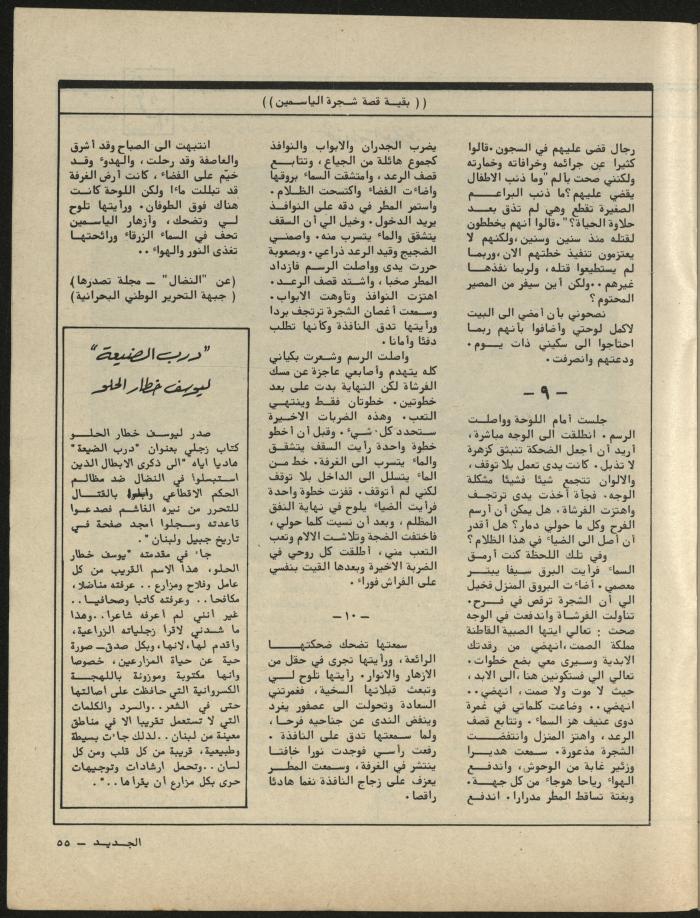 (( بقية قصة شجرة الياسمين))
رجال قضى عليهم في السجون٠قالوا
كثيرا عن جرائمه وخرافاته وخمارته
ولكنني صحت بألم "وما ذنب الاطفال
يقضي عليهم؟ما ذنب البراعم
الصغيرة تقطع وهي لم تذق بعد
حلاوة الحياة؟"٠قالوا انهم يخططون
لقتله منذ سنين وسنين،ولكنهم لا
يعتزمون تنفيذ خطتهم الان،وربما
لم يستطيعوا قتله، ولربما نفذها
غيرهم ٠٠ولكن أين سيفر من المصير
المحتوم؟
نصحوني بأن أمضي الى البيت
لاكمل لوحتي وأضافوا بأنهم ربما
احتاجوا الى سكيني ذات يوم٠
ودعتهم وانصرفت٠
- ٩ -
جلست أمام اللوحة وواصلت
الرسم٠ انطلقت الى الوجه مباشرة،
أريد أن أجعل الضحكة تنبثق كزهرة
لا تذبل٠ كانت يدي تعمل بلا توقف،
والالوان تتجمع شيئا فشيئا مشكلة
الوجه٠ فجأة أخذت يدي ترتجف
واهتزت الفرشاة، هل يمكن أن أرسم
الفرح وكل ما حولي دمار؟ هل أقدر
أن أصل الى الضياء في هذا الظلام؟
وفي تلك اللحظة كنت أرمق
السماء فرأيت البرق سيفا يبتر
معصمي٠ أضاءت البروق المنزل فخيل
الي أن الشجرة ترقص في فرح٠
تناولت الفرشاة واندفعت في الوجه
صحت : تعالي ايتها الصبية القاطنة
مملكة الصمت،انهضي من رقدتك
الابدية وسيرى معي بضع خطوات٠
تعالي الي فستكونين هنا،الى الابد،
حيث لا موت ولا صمت، انهضي٠٠
انهضي٠٠ وضاعت كلماتي في غمرة
دوى عنيف هز السماء٠ وتتابع قصف
الرعد، واهتز المنزل وانتفضت
الشجرة مذعورة٠ سمعت هديرا
وزئير غابة من الوحوش، واندفع
الهواء رياحا هوجاء من كل جهة٠
وبغتة تساقط المطر مدرارا٠ اندفع
يضرب الجدران والابواب والنوافذ
كجموع هائلة من الجياع، وتتابع
قصف الرعد، وامتشقت السماء بروقها
واضاءت الفضاء واكتسحت الظلام٠
واستمر المطر في دقه على النوافذ
يريد الدخول٠ وخيل الي أن السقف
يتشقق والماء يتسرب منه٠ واصمني
الضجيج وقيد الرعد ذراعي٠ وبصعوبة
حررت يدى وواصلت الرسم فازداد
المطر صخبا، واشتد قصف الرعد٠
اهتزت النوافذ وتأوهت الابواب٠
وسمعت أغصان الشجرة ترتجف بردا
ورأيتها تدق النافذة وكأنها تطلب
دفئا وأمانا٠
واصلت الرسم وشعرت بكياني
كله يتهدم وأصابعي عاجزة عن مسك
الفرشاة لكن النهاية بدت على بعد
خطوتين٠ خطوتان فقط وينتهي
التعب٠ وهذه الضربات الاخيرة
ستحدد كل شيء٠ وقبل أن أخطو
خطوة واحدة رأيت السقف يتشقق
والماء يتسرب الى الغرفة٠ خط من
الماء يتسلل الى الداخل بلا توقف
لكني لم أتوقف٠ قفزت خطوة واحدة
فرأيت الضياء يلوح في نهاية النفق
المظلم، وبعد أن نسيت كلما حولي،
فاختفت الضجة وتلاشت الالام وتعب
التعب مني، أطلقت كل روحي في
الضربة الاخيرة وبعدها القيت بنفسي
على الفراش فوراء٠
- ١٠ -
سمعتها تضحك ضحكتها
الرائعة، ورأيتها تجرى في حقل من
الازهار والانوار٠ رأيتها تلوح لي
وتبعث قبلاتها السخية، فغمرتني
السعادة وتحولت الى عصفور يغرد
وينفض الندى عن جناحيه فرحا،
ولما سمعتها تدق على النافذة٠
رفعت راسي فوجدت نورا خافتا
ينتشر في الغرفة، وسمعت المطر
يعزف على زجاج النافذة نغما هادئا
راقصا٠
انتبهت الى الصباح وقد أشرق
والعاصفة وقد رحلت، والهدوء وقد
خيّم على الفضاء، كانت أرض الغرفة
قد تبللت ماءا ولكن اللوحة كانت
هناك فوق الطوفان٠ ورأيتها تلوح
لي وتضحك، وأزهار الياسمين
تحف في السماء الزرقاء ورائحتها
تغذى النور والهواء٠٠
(عن "النضال" - مجلة تصدرها)
(جبهة التحرير الوطني البحرانية)
"درب الضيعة"
ليوسف خطار الحلو
صدر ليوسف خطار الحلو
كتاب زجلي بعنوان "درب الضيعة"
هاديا أياه "الى ذكرى الابطال الذين
استبسلوا في النضال ضد مظالم
الحكم الاقطاعي بالقتال
للتحرر من نيره الغاشم فصدعوا
قاعدته وسجلوا أمجد صفحة في
تاريخ جبيل ولبنان"٠
جاء في مقدمته "يوسف خطار
الحلو، هذا الاسم القريب من كل
عامل وفلاح ومزارع٠٠ عرفته مناضلا،
مكافحا٠٠ وعرفته كاتبا وصحافيا٠٠
غير أنني لم أعرفه شاعرا٠٠وهذا
ما شدني لاقرأ زجلياته الزراعية،
وأقدم لها،لانها،وبكل صدق- صورة
حية عن حياة المزارعين، خصوصا
وانها مكتوبة وموزونة باللهجة
الكسروانية التي حافظت على اصالتها
حتى في الشعر٠٠والسرد والكلمات
التي لا تستعمل تقريبا الا في مناطق
معينة من لبنان٠٠لذلك جاءت بسيطة
وطبيعية، قريبة من كل قلب ومن كل
لسان٠٠وتحمل ارشادات وتوجيهات
حرى بكل مزارع أن يقرأها٠٠"٠
الجديد - ٥٥